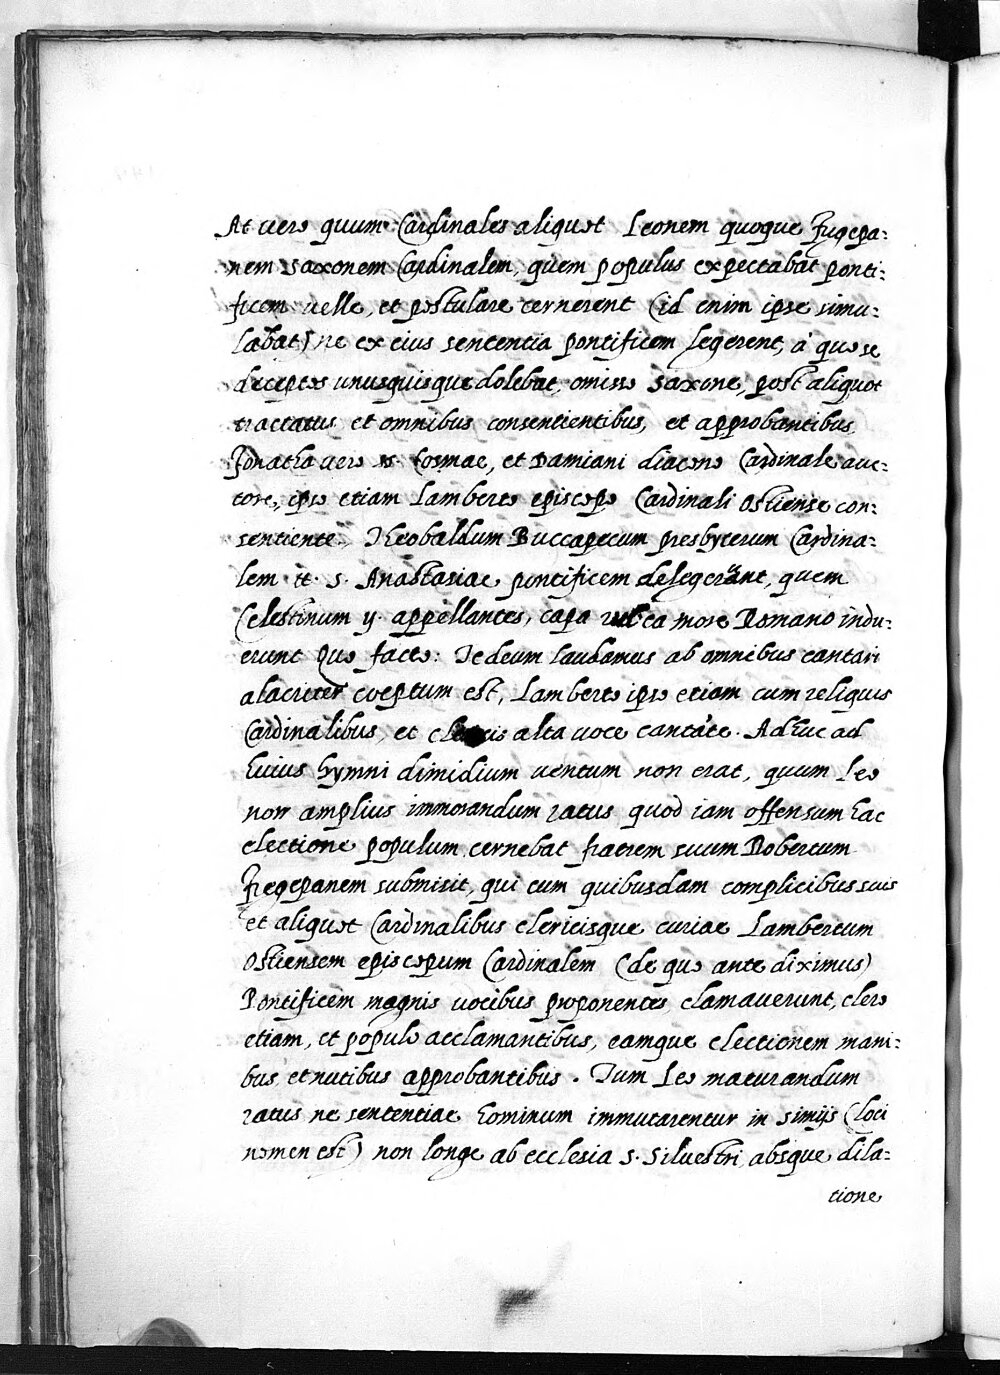 At vero quum Cardinales aliquot Leonem quoque Fregepa-
nem Saxonem Cardinalem, quem populus expectabat ponti-
ficem velle, et postulare cernerent (id enim ipse simu-
labat) ne ex eius sententia pontificem legerent, à quo se
deceptos unusquisque dolebat, omisso Saxone, post aliquot
tractatus et omnibus consentientibus, et approbantibus
Jonatha vero s. Cosmae, et Damiani diacono Cardinale auc-
tore, ipso etiam Lamberto episcopo Cardinali Ostiense con-
sentiente. Theobaldum Buccapecum presbyterum Cardina-
lem tt. s. Anastasiae pontificem delegerunt, quem
Celestinum ij. appellantes, capa rubea more Romano indu-
erunt Quo facto: Te deum laudamus ab omnibus cantari
alacriter coeptum est, Lamberto ipso etiam cum reliquis
Cardinalibus, et clericis alta voce cantàte. Adhuc ad
huius hymni dimidium ventum non erat, quum Leo
non amplius immorandum ratus quod iam offensum hac
electione populum cernebat fratrem suum Robertum
Fregepanem submisit, qui cum quibusdam complicibus suis
et aliquot Cardinalibus clericisque curiae Lambertum
Ostiensem episcopum Cardinalem (de quo ante diximus)
Pontificem magnis vocibus proponentes clamaverunt, clero
etiam, et populo acclamantibus, eamque electionem mani-
bus et nutibus approbantibus. Tum Leo maturandum
ratus ne sententiae hominum immutarentur in simijs (loci
nomen est) non longe ab ecclesia s. Silvestri absque dila-
tione